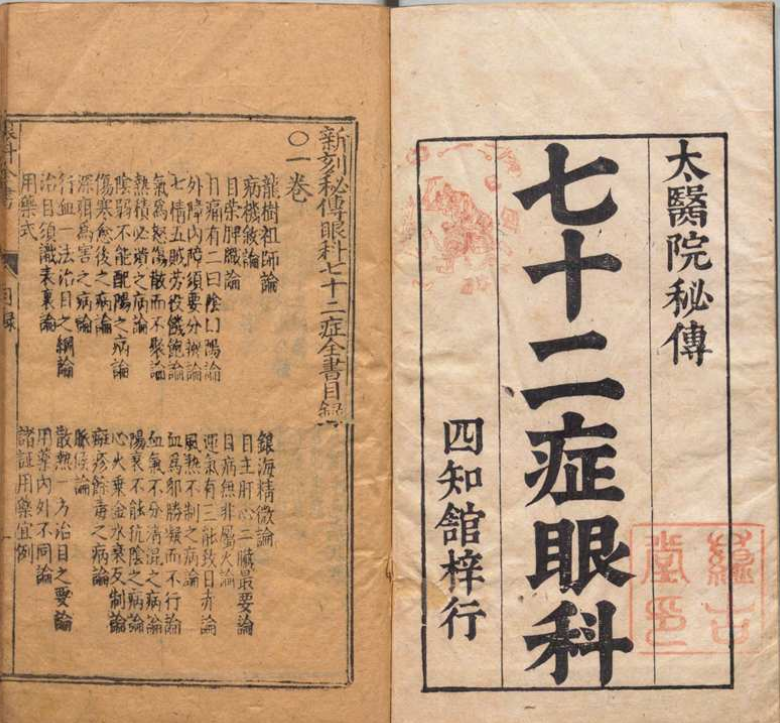 太醫院秘傳
七十二症眼科
四知舘梓行
新刻秘傳眼科七十二症全書目録
〇一卷
龍樹祖師論
銀海精微論
病機敘論
目主肝心二臟最要論
脾臟論
目病無非屬火論
目痛有二曰陰曰陽論
運氣有三能致目赤論
外障內障須要分辨論
風熱不制之病論
七情五賊勞役饑飽論
血爲邪勝凝而不行論
氣爲怒傷散而不聚論
血氣不分淆混之病論
熱積必潰之病論
陽衰不能抗陰之病論
陰弱不能配陽之病論
心火乘金水衰反制論
傷寒愈後之病論
癍疹餘毒之病論
爲害之病論
脈候論
行血一法治目之綱論
散熱一方治目之要論
治目須識表裏論
用藥內外不同論
用藥式
諸証用藥宜例
目録